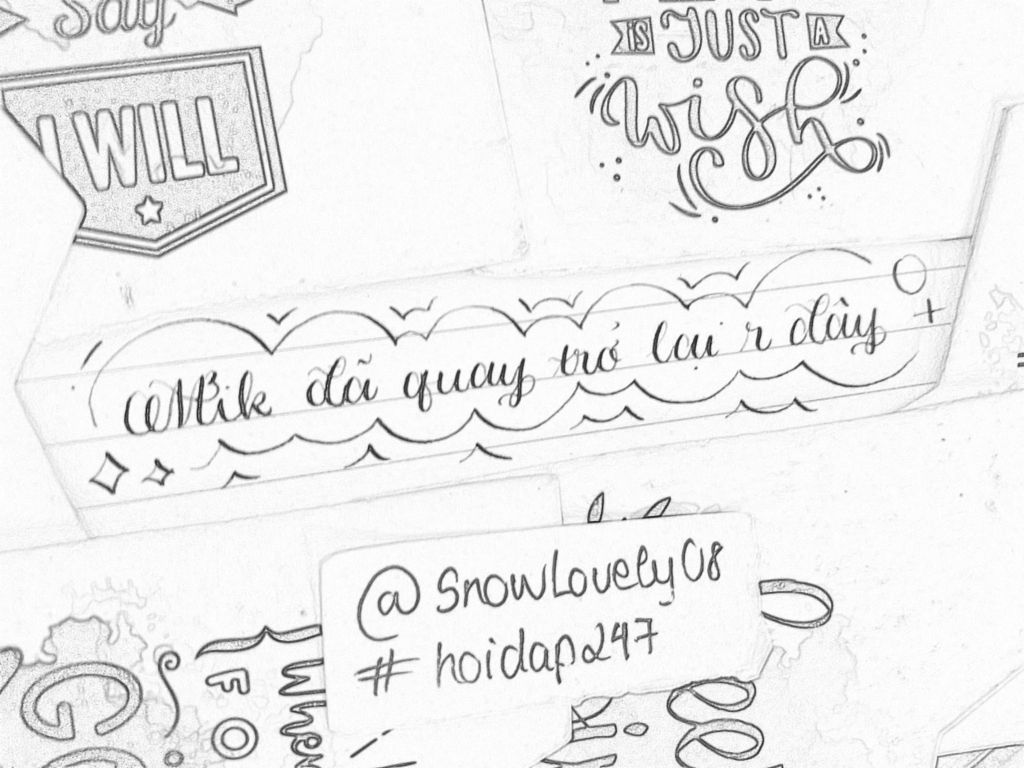 Say
I WILL
IS JUST A
Wish
Mik đã quay trở lại r đây
@SnowLovely08
#hoidap247
FO
Whe